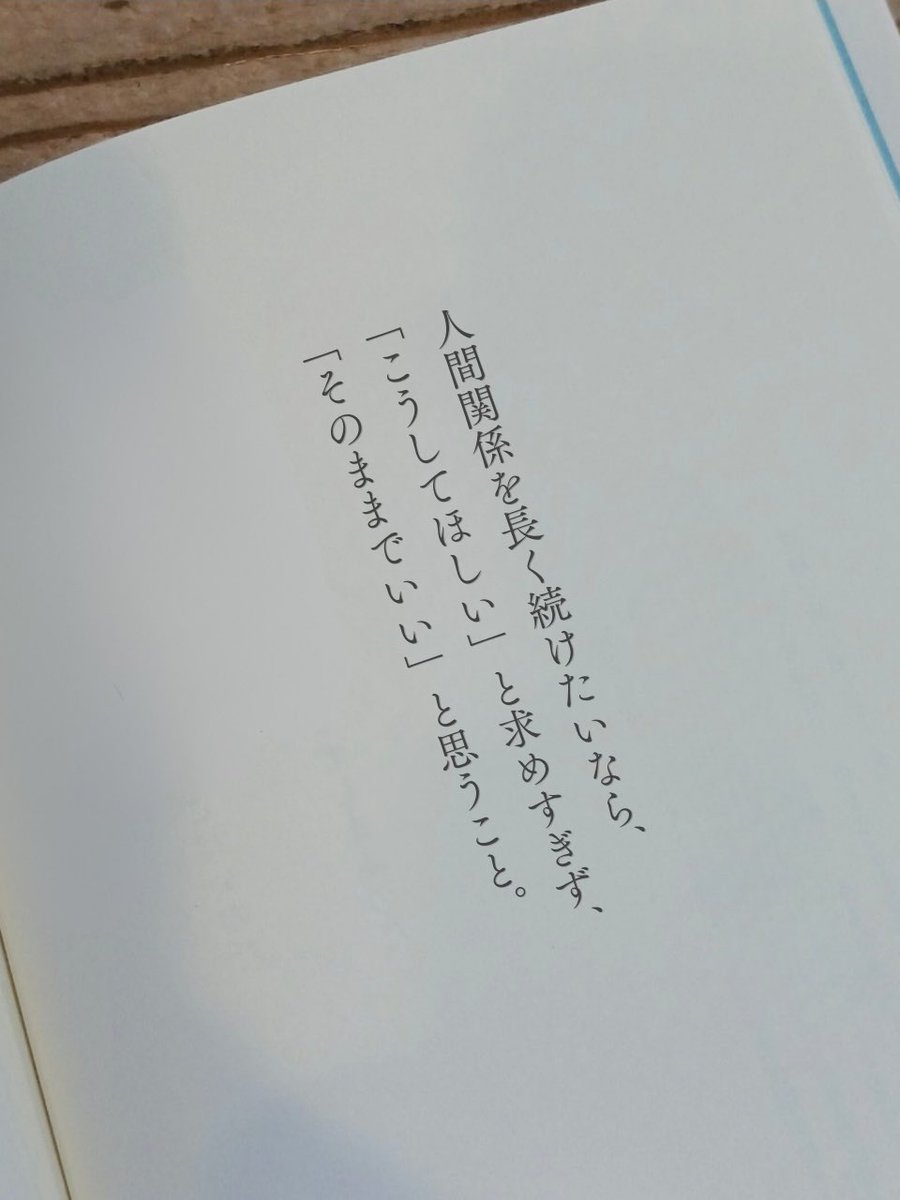 人間関係を長く続けたいなら、
「こうしてほしい」と求めすぎず、
「そのままでいい」と思うこと。